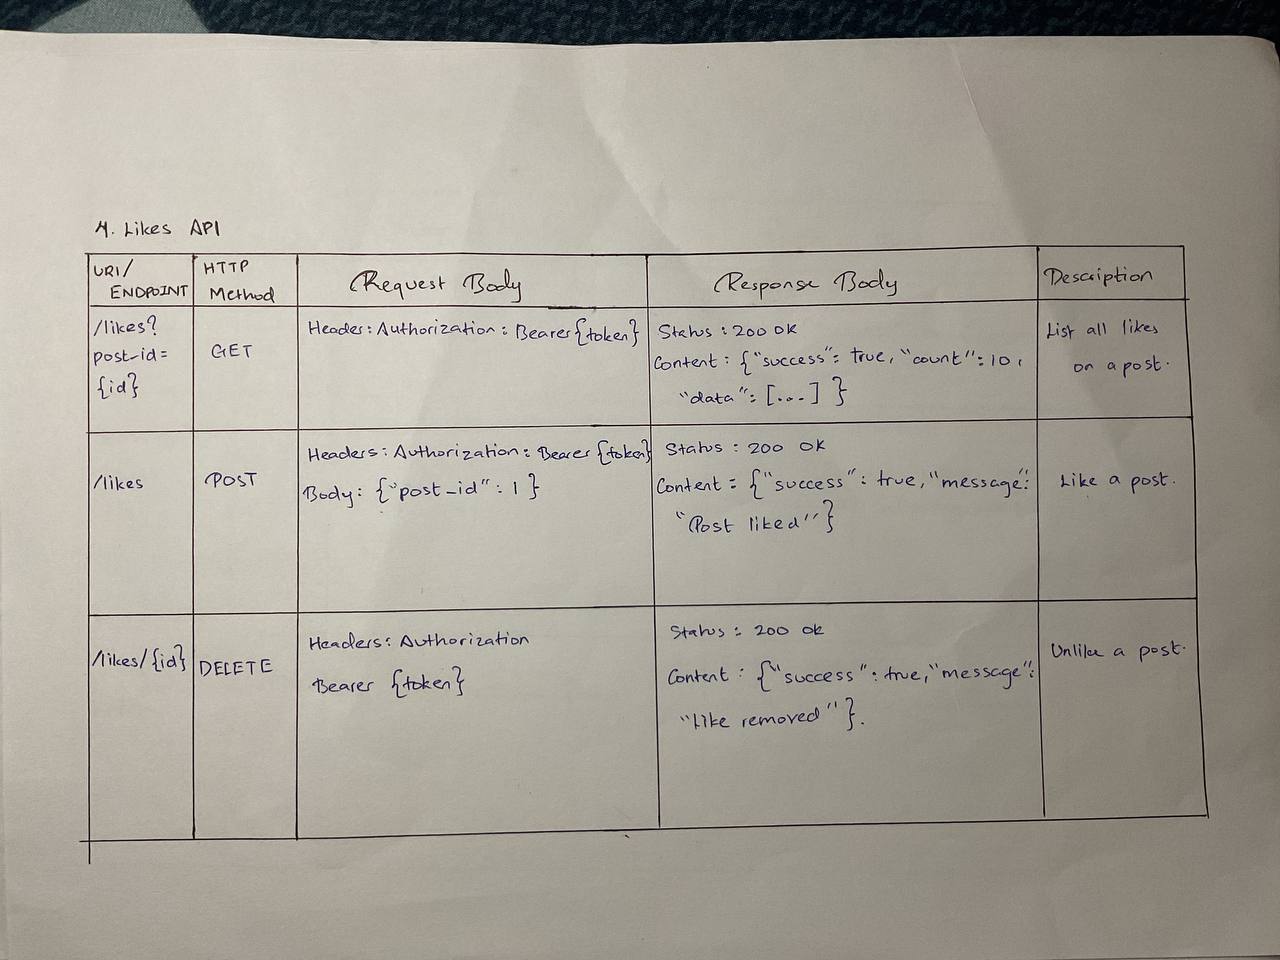 4. Likes API
URI/
ENDPOINT
HTTP
Method
Request Body
Response Body
Description
/likes?
post-id=
{id}
GET
Header: Authorization: Bearer {token}
Status : 200 OK
Content : {"success": true, "count": 10,
"data": [...] }
List all likes
on a post.
/likes
POST
Headers: Authorization: Bearer {token}
Body: {"post-id": 1 }
Status : 200 OK
Content = {"success": true, "message":
"Post liked"}
Like a post.
/likes/{id}
DELETE
Headers: Authorization
Bearer {token}
Status : 200 ok
Content : {"success": true, "message":
"Like removed"}.
Unlike a post.